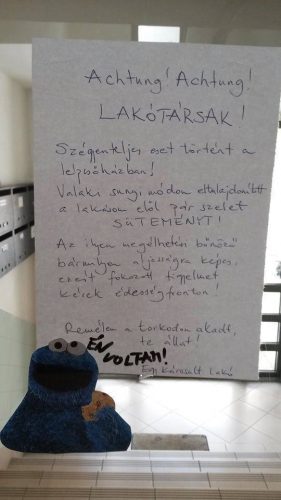 Achtung! Achtung!
LAKÓTÁRSAK!
Szégyenteljes eset történt a
lépcsőházban!
Valaki sunyi módon eltulajdonított
a lakásom elől pár szelet
SÜTEMÉNYT!
Az ilyen megélhetési bűnöző
bármilyen aljasságra képes,
ezért fokozott figyelmet
kérek édességfronton!
Remélem a torkodon akadt,
te állat!
Egy károsult lakó
ÉN
VOLTAM!